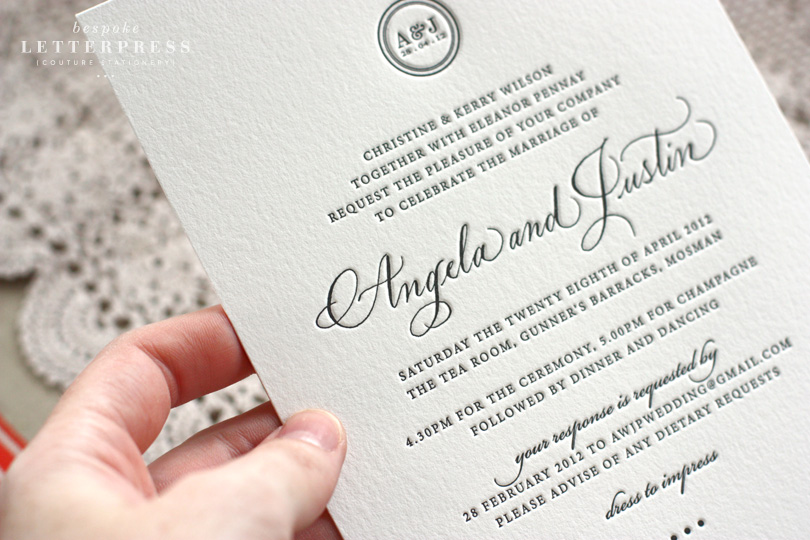 bespoke
LETTERPRESS
{COUTURE STATIONERY}
A & J
28.04.12
CHRISTINE & KERRY WILSON
TOGETHER WITH ELEANOR PENNAY
REQUEST THE PLEASURE OF YOUR COMPANY
TO CELEBRATE THE MARRIAGE OF
Angela and Justin
SATURDAY THE TWENTY EIGHTH OF APRIL 2012
THE TEA ROOM, GUNNER'S BARRACKS, MOSMAN
4.30PM FOR THE CEREMONY, 5.00PM FOR CHAMPAGNE
FOLLOWED BY DINNER AND DANCING
your response is requested by
28 FEBRUARY 2012 TO AWJPWEDDING@GMAIL.COM
PLEASE ADVISE OF ANY DIETARY REQUESTS
dress to impress